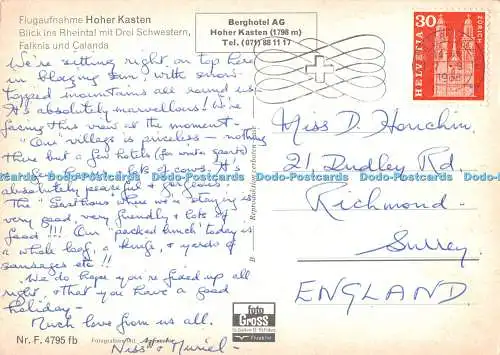 Flugaufnahme Hoher Kasten
Blick ins Rheintal mit Drei Schwestern,
Falknis und Calanda
Berghotel AG
Hoher Kasten (1798 m)
Tel. (071) 88 11 17
30
HELVETIA
ZÜRICH
We're sitting right on top here
in blazing sun, with snow-
topped mountains all round us.
It's absolutely marvellous! We're
facing this view at the moment -
"Our" village is priceless - nothing
there but a few hotels (for winter sports)
cows. It's
absolutely peaceful & gorgeous.
The "Gasthaus" where we're staying is
very good, very friendly & lots of
food!!! Our "packed lunch" today is
a whole loaf, a huge, & yards of
sausages etc!!
We do hope you're fixed up all
right, & that you have a good
holiday -
Much love from us all.
Niss & Muriel -
Miss D. Houchin,
21 Dudley Rd.
Richmond.
Surrey.
ENGLAND
foto
Gross
Nr. F. 4795 fb
Dodo-Postcards Dodo-Postcards Dodo-Postcards Dodo-Postcards